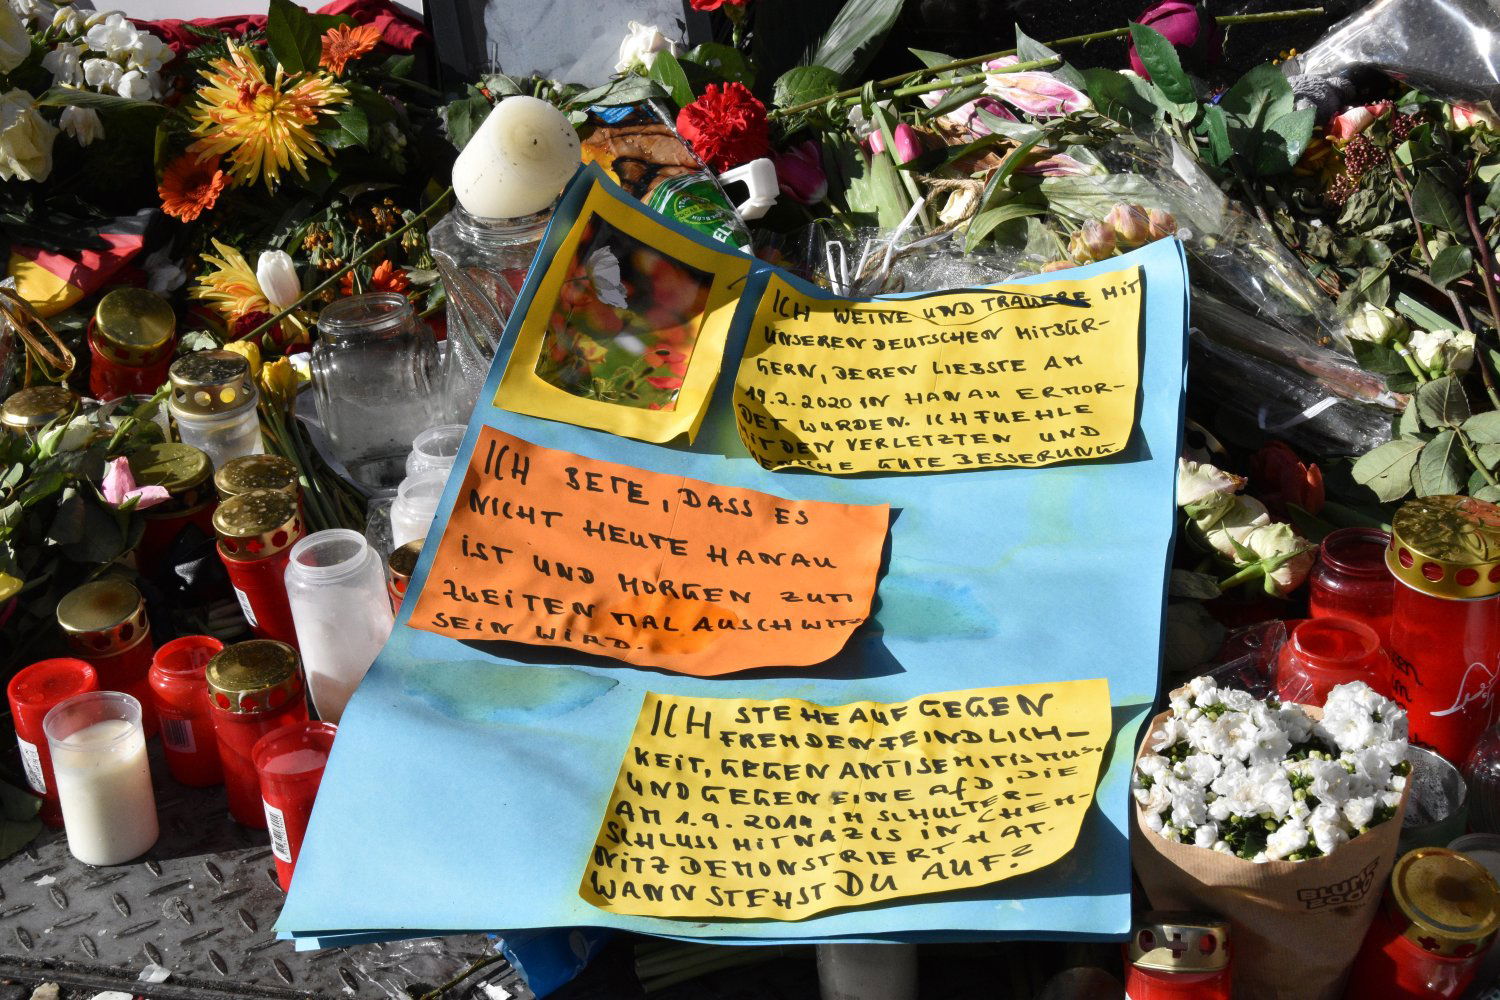 ICH WEINE UND TRAUERE MIT
UNSEREN DEUTSCHEN MITBÜR-
GERN, DEREN LIEBSTE AM
19.2.2020 IN HANAU ERMOR-
DET WURDEN. ICH FUEHLE
MIT DEN VERLETZTEN UND
WENSCHE GUTE BESSERUNG.
ICH BETE, DASS ES
NICHT HEUTE HANAU
IST UND MORGEN ZUM
ZWEITEN MAL AUSCHWITZ
SEIN WIRD.
ICH STEHE AUF GEGEN
FREMDENFEINDLICH-
KEIT, GEGEN ANTISEMITISMUS.
UND GEGEN EINE AfD, DIE
AM 1.9.2014 IM SCHULTER-
SCHLUSS MIT NAZIS IN CHEM-
NITZ DEMONSTRIERT HAT.
WANN STEHST DU AUF?
BLUME